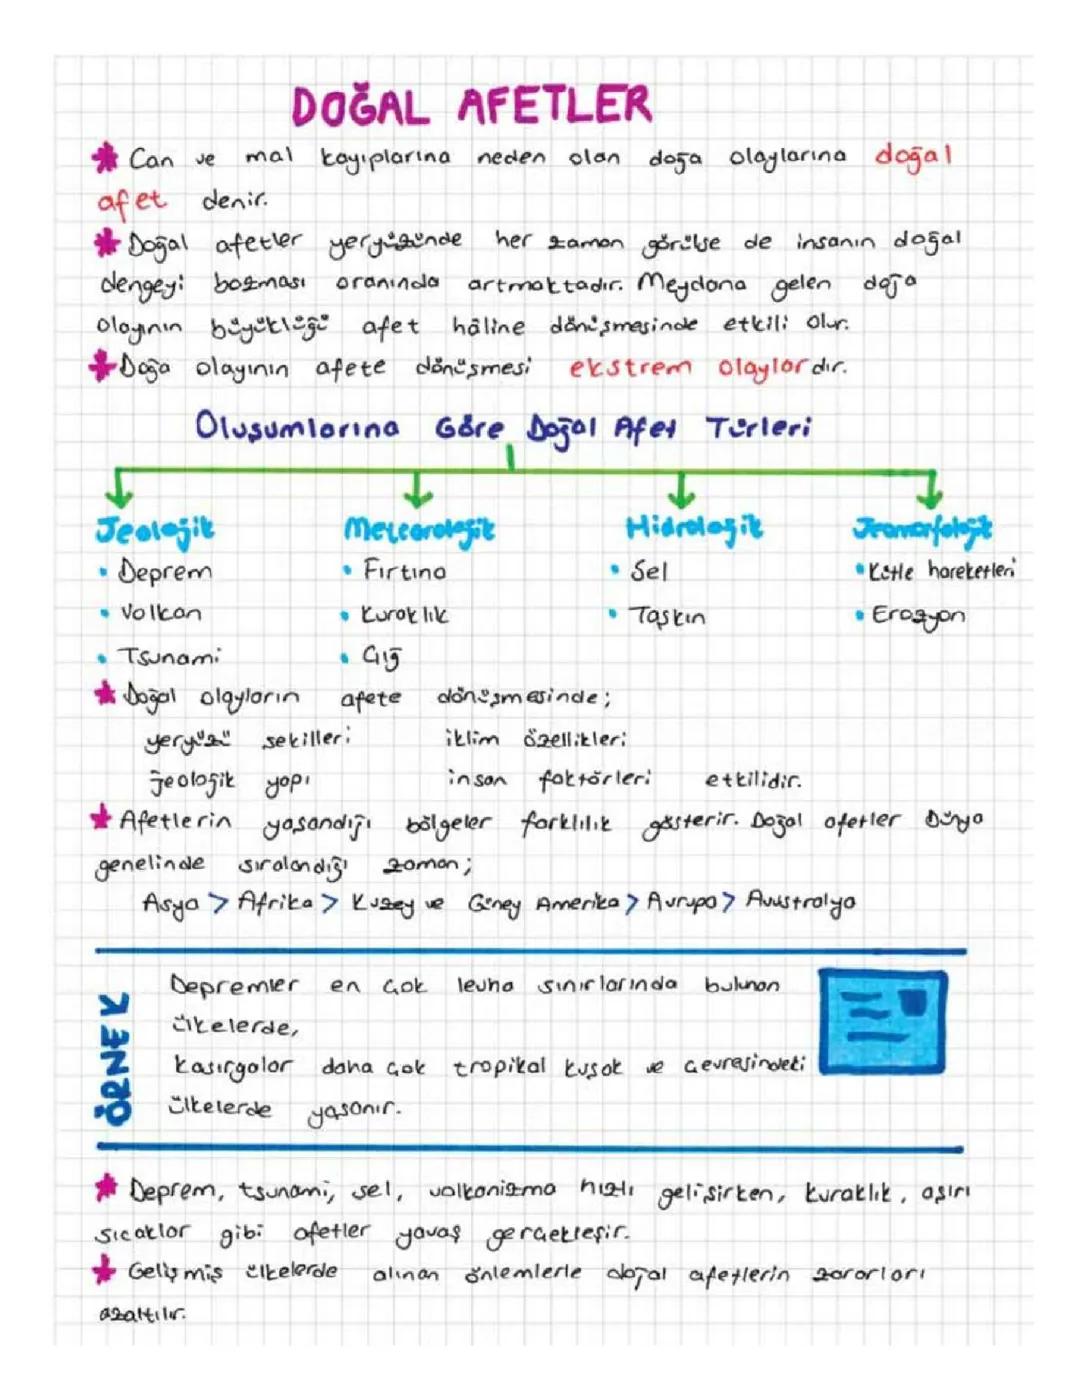 DOĞAL AFETLER
* Can ve mal kayıplarına neden olan doğa olaylarına doğal
afet denir.
* Doğal afetler yeryüzünde her zaman görülse de insanın doğal
dengeyi bozması oranında artmaktadır. Meydana gelen doğa
olayının büyüklüğü afet hâline dönüşmesinde etkili olur.
* Doğa olayının afete dönüşmesi ekstrem olaylardır.
Oluşumlarına Göre Doğal Afet Türleri
Jeolojik Meteorolojik Hidrolojik Jeomorfolojik
• Deprem • Fırtına • Sel • Kütle hareketleri
• Volkan • Kuraklık • Taşkın • Erozyon
• Tsunami • Çığ
* Doğal olayların afete dönüşmesinde;
yeryüzü şekilleri iklim özellikleri
jeolojik yapı insan faktörleri etkilidir.
* Afetlerin yaşandığı bölgeler farklılık gösterir. Doğal afetler Dünya
genelinde sıralandığı zaman;
Asya > Afrika > Kuzey ve Güney Amerika > Avrupa > Avustralya
ÖRNEK
Depremler en çok levha sınırlarında bulunan
ülkelerde,
kasırgalar daha çok tropikal kuşak ve çevresindeki
ülkelerde yaşanır.
* Deprem, tsunami, sel, volkanizma hızlı gelişirken, kuraklık, aşırı
sıcaklar gibi afetler yavaş gerçekleşir.
* Gelişmiş ülkelerde alınan önlemlerle doğal afetlerin zararları
azaltılır.